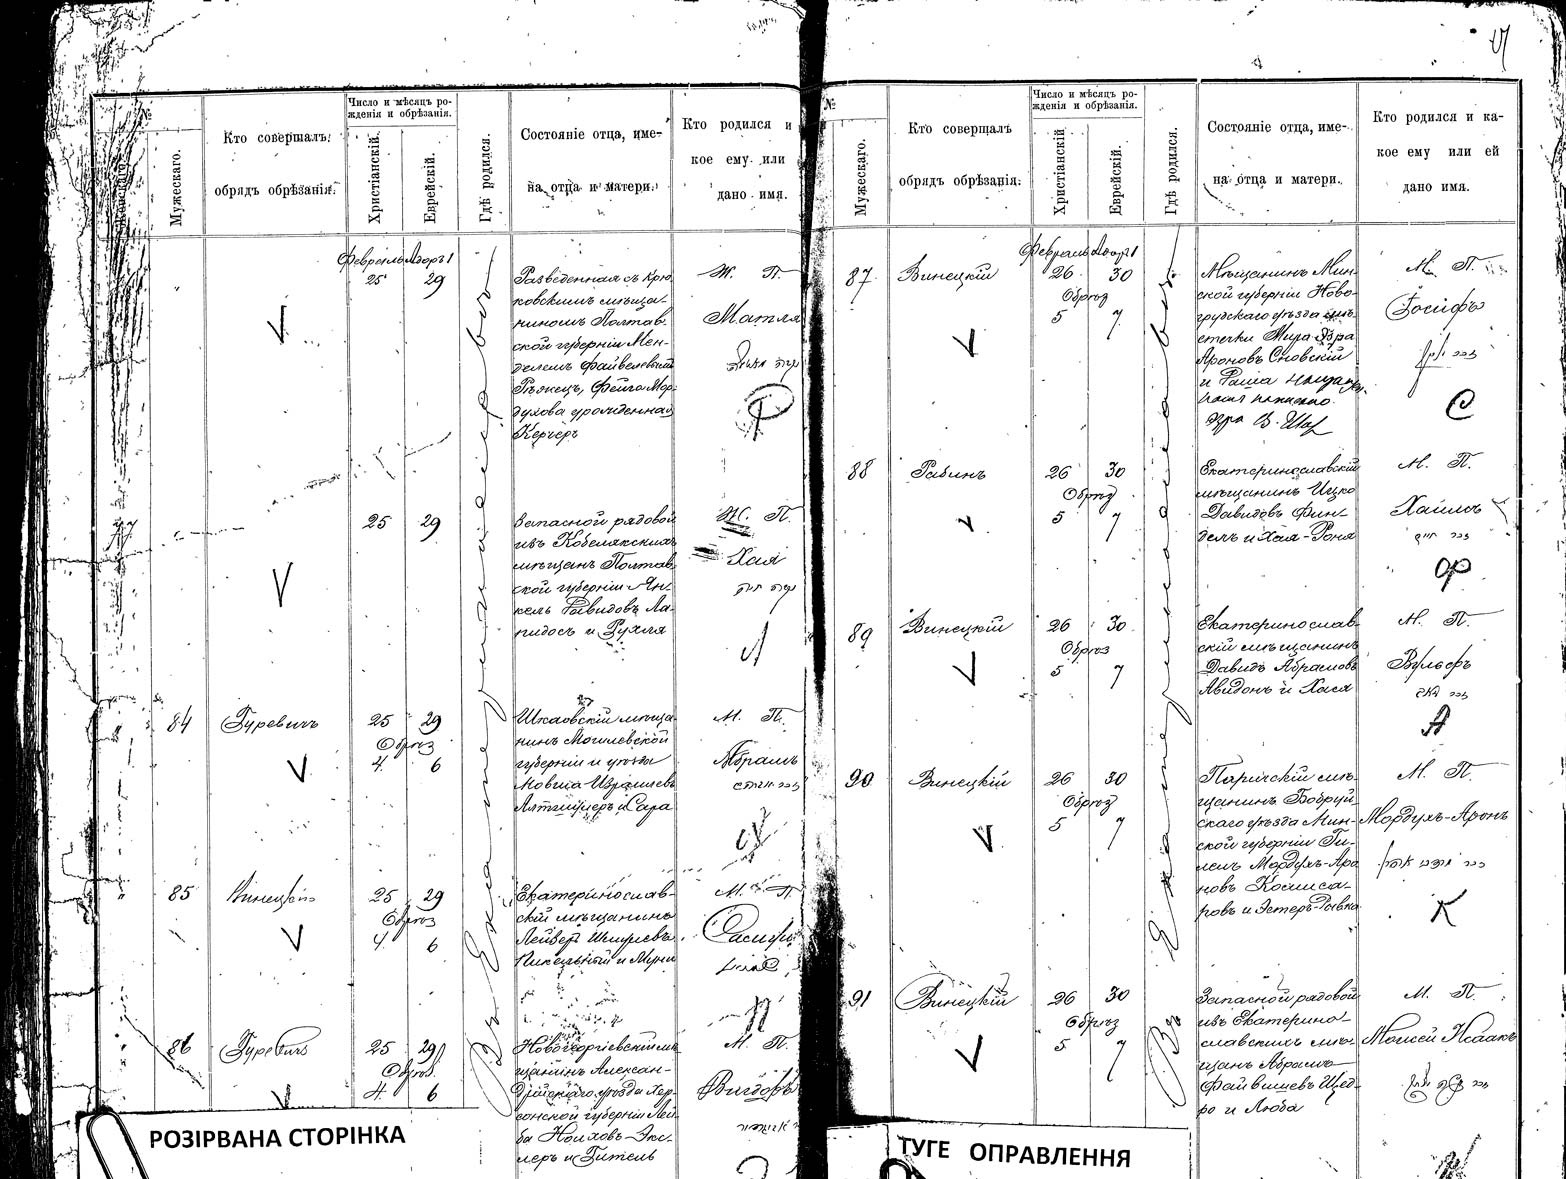 №
Женскаго.
Мужескаго.
Кто совершалъ
обрядъ обрѣзанія.
Число и мѣсяцъ ро-
жденія и обрѣзанія.
Христіанскій.
Еврейскій.
Гдѣ родился.
Состояніе отца, име-
на отца и матери.
Кто родился и
кое ему или
дано имя.
Въ Екатеринославѣ
Февраль Адаръ 1
25 29
Разведенная съ Крю-
ковскимъ мѣща-
ниномъ Полтав-
ской губерніи Мен-
делемъ Файвелевымъ
Фейга Мор-
духова урожденная
Керчеръ
Ж. П.
Матля
Ф
77
25 29
Запасной рядовой
изъ Кобелякскихъ
мѣщанъ Полтав-
ской губерніи Ян-
кель Давидовъ Ла-
пидосъ и Рухля
Ж. П.
Хая
Л
84
Гуревичъ
25 29
Обрѣз
4 6
Шкловскій мѣща-
нинъ Могилевской
губерніи и уѣзда
Мовша Израилевъ
и Сара
М. П.
Абрамъ
85
Винецкій
25 29
Обрѣз
4 6
Екатеринослав-
скій мѣщанинъ
Лейзеръ
М. П.
86
Гуревичъ
25 29
Обрѣз
4 6
Новогеоргіевскій мѣ-
щанинъ Алексан-
дрійскаго уѣзда Хер-
сонской губерніи Лей-
ба
и Гитель
М. П.
Вигдоръ
РОЗІРВАНА СТОРІНКА
№
Мужескаго.
Кто совершалъ
обрядъ обрѣзанія.
Число и мѣсяцъ ро-
жденія и обрѣзанія.
Христіанскій
Еврейскій.
Гдѣ родился.
Состояніе отца, име-
на отца и матери.
Кто родился и ка-
кое ему или ей
дано имя.
Въ Екатеринославѣ
Февраль Адаръ 1
87
Винецкій
26 30
Обрѣз
5 7
Мѣщанинъ Мин-
ской губерніи Ново-
грудскаго уѣзда мѣ-
стечка Мира
Ароновъ Сновскій
и Раша
М. П.
Іосифъ
С
88
Рабинъ
26 30
Обрѣз
5 7
Екатеринославскій
мѣщанинъ Ицко
Давидовъ Фин-
дель и Хая-Роня
М. П.
Хаимъ
זכר חיים
Ф
89
Винецкій
26 30
Обрѣз
5 7
Екатеринослав-
скій мѣщанинъ
Давидъ Абрамовъ
Авидонъ и Хася
М. П.
Вульфъ
А
90
Винецкій
26 30
Обрѣз
5 7
Паричскій мѣ-
щанинъ Бобруй-
скаго уѣзда Мин-
ской губерніи Ги-
лемъ Мордухъ-Аро-
новъ Комиса-
ровъ и Эстеръ-Рывка
М. П.
Мордухъ-Аронъ
К
91
Винецкій
26 30
Обрѣз
5 7
Запасной рядовой
изъ Екатерино-
славскихъ мѣ-
щанъ Абрамъ
Файвишевъ Щед-
ро и Люба
М. П.
Моисей Исаакъ
ТУГЕ ОПРАВЛЕННЯ